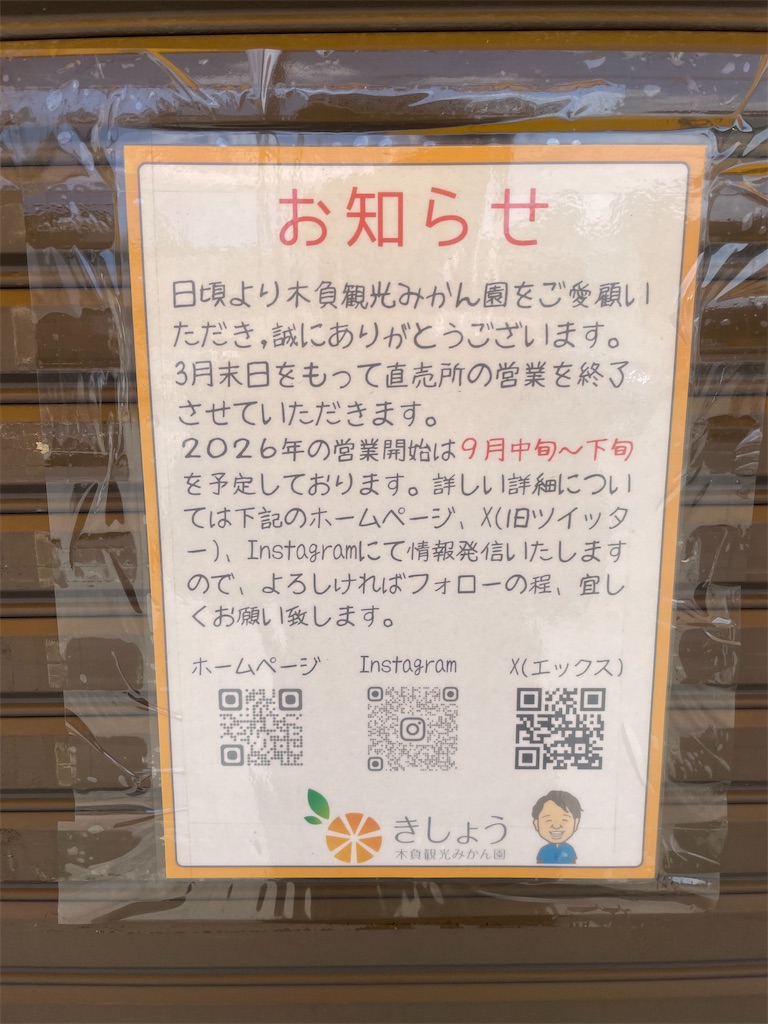 お知らせ
日頃より木負観光みかん園をご愛顧い
ただき,誠にありがとうございます。
3月末日をもって直売所の営業を終了
させていただきます。
2026年の営業開始は9月中旬～下旬
を予定しております。詳しい詳細につい
ては下記のホームページ、X(旧ツイッタ
ー)、Instagramにて情報発信いたします
ので、よろしければフォローの程、宜し
くお願い致します。
ホームページ Instagram X(エックス)
きしょう
木負観光みかん園